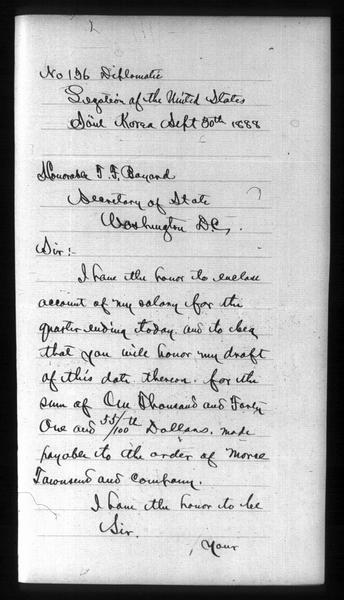 No 196 Diplomatic
Legation of the United States
Söul Korea Sept 30th 1888
Honorable T. F. Bayard
Secretary of State
Washington D.C.
Sir:-
I have the honor to enclose
account of my salary for the
quarter ending today. and to beg
that you will honor my draft
of this date thereon. for the
sum of One Thousand and Forty
One and 55/100th Dollars. made
payable to the order of Morse
Townsend and Company.
I have the honor to be
Sir.
Your